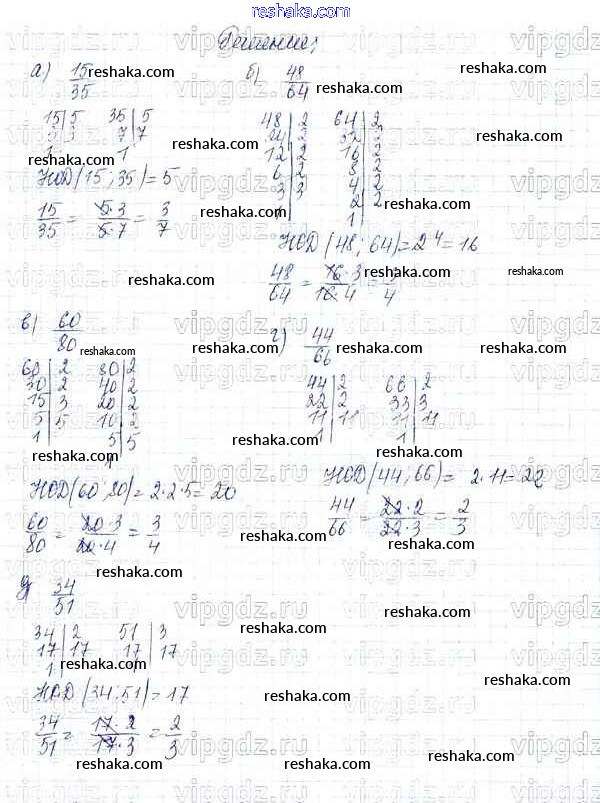 reshaka.com
Решение;
а) 15/35
15|5 35|5
3|3 7|7
1 1
НОД(15; 35) = 5
15/35 = 5·3/5·7 = 3/7
б) 48/64
48|2 64|2
24|2 32|2
12|2 16|2
6|2 8|2
3|3 4|2
1 2|2
1
НОД(48; 64) = 2⁴ = 16
48/64 = 16·3/16·4 = 3/4
в) 60/80
60|2 80|2
30|2 40|2
15|3 20|2
5|5 10|2
1 5|5
1
НОД(60; 80) = 2·2·5 = 20
60/80 = 20·3/20·4 = 3/4
г) 44/66
44|2 66|2
22|2 33|3
11|11 11|11
1 1
НОД(44, 66) = 2·11 = 22
44/66 = 22·2/22·3 = 2/3
д) 34/51
34|2 51|3
17|17 17|17
1
НОД(34; 51) = 17
34/51 = 17·2/17·3 = 2/3